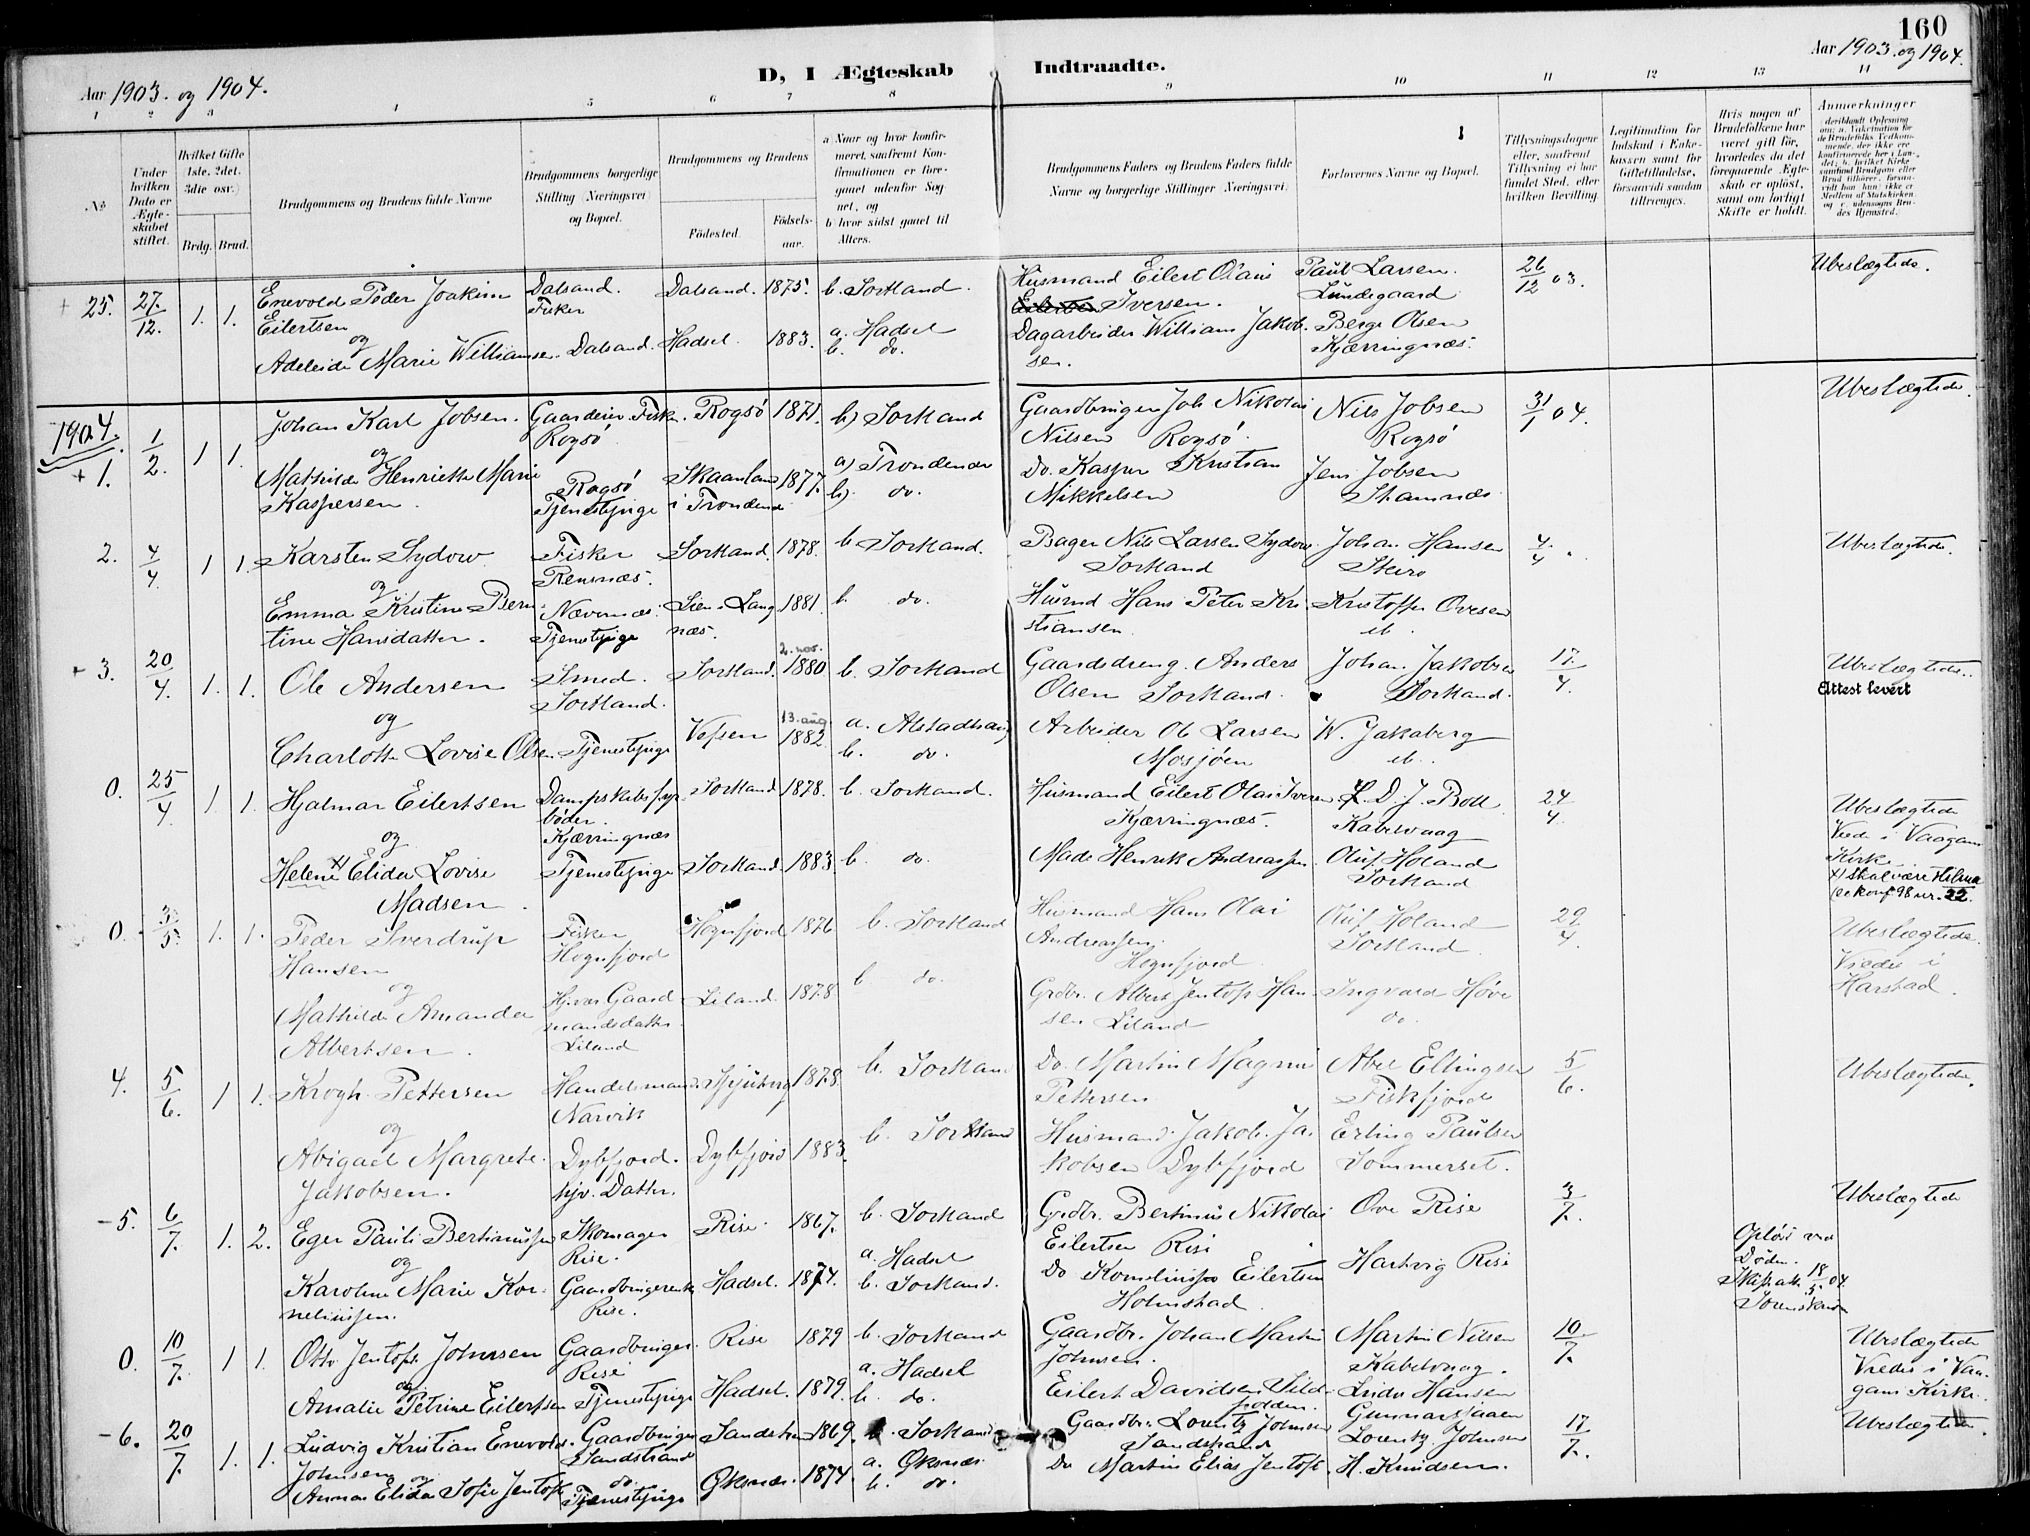 160
Aar 1903. og 1904.
D, I Ægteskab Indtraadte.
Aar 1903. og 1904.
1 2 3 4 5 6 7 8 9 10 11 12 13 14
No
Under hvilken Dato er Ægteskabet stiftet.
Hvilket Gifte 1ste, 2det, 3die osv.
Brdg. Brud.
Brudgommens og Brudens fulde Navne
Brudgommens borgerlige Stilling (Næringsvei) og Bopæl.
Brudgommens og Brudens
Fødested.
Fødselsaar.
a Naar og hvor konfirmeret, saafremt Konfirmationen er foregaaet udenfor Sognet, og
b hvor sidst gaaet til Alters.
Brudgommens Faders og Brudens Faders fulde Navne og borgerlige Stillinger (Næringsvei)
Forlovernes Navne og Bopæl.
Tillysningsdagene eller, saafremt Tillysning ei har fundet Sted, efter hvilken Bevilling
Legitimation for Indskud i Enkekassen samt for Giftetilladelse, forsaavidt saadan tiltrænges.
Hvis nogen af Brudefolkene har været gift før, hvorledes da det foregaaende Ægteskab er opløst, samt om lovligt Skifte er holdt.
Anmærkninger
+ 25. 27/12. 1. 1. Enevold Peder Joakim Eilertsen
Dalsand. Fisker
Dalsand. 1875. b. Sortland.
Husmand Eilert Olai Iversen.
Paul Larsen. Lundegaard
26/12 03.
Ubeslægtede.
og
Adeleide Marie Williamsen. Dalsand. Hadsel. 1883. a. Hadsel b. do.
Dagarbeider William Jakobsen.
Berge Olsen Kjærringnæs.
1904.
+ 1. 1/2. 1 1. Johan Karl Jobsen.
Gaardeier Fisk. Rogsö
Rogsö 1871. b) Sortland
Gaardbruger Job Nikolai Nilsen Rogsö.
Nils Jobsen Rogsö
31/1 04.
Ubeslægtede
og
Mathilde Henriette Marie Kaspersen.
Rogsö Tjenestepige
Skaanland i Trondenæs 1877. a) Trondenæs b) do.
Do. Kasper Kristian Mikkelsen
Jens Jobsen Stamnæs
2. 4/4. 1 1. Karsten Sydow
Fisker Rensnæs.
Sortland. 1878. b. Sortland.
Bager Nils Larsen Sydow Sortland
Johan Hansen Steiro
4/4.
Ubeslægtede.
og
Emma Kristine Berntine Hansdatter.
Nævernes. Tjenestepige
Lien i Langnæs. 1881. b. do.
Husmd Hans Peter Kristiansen.
Kristoffer Ovesen ib.
+ 3. 20/4. 1. 1. Ole Andersen
Smed. Sortland.
Sortland. 2. nov. 1880 b. Sortland
Gaardsdreng Anders Olsen Sortland.
Johan Jakobsen Sortland.
17./4.
Ubeslægtede.
Attest levert
og
Charlotte Lovise Olsen. Tjenestepige Vefsen 13. aug. 1882 a. Alstadhaug b. do.
Arbeider Ole Larsen Mosjöen
W. Jakaberg ib.
0. 25/4. 1 1. Hjalmar Eilertsen
Dampskibsfyrböder. Kjærringnæs
Sortland 1878. b. Sortland.
Husmand Eilert Olai Iversen Kjærringnæs.
D. J. Boll Kabelvaag
24/4.
Ubeslægtede
Viede i Vaagan Kirke
x) skal være Hilma
(se konf 98 nr. 22.
og
Helene x) Elida Lovise Madsen.
Tjenestepige Sortland. 1883. b. do.
Mads Henrik Andreassen.
Oluf Holand Sortland
0. 3/5. 1. 1. Peder Sverdrup Hansen
Fisker Hognfjord
Hognfjord 1876 b. Sortland
Husmand Hans Olai Andreassen. Hognfjord.
Oluf Holand Sortland
29/4.
Ubeslægtede.
Viede i Harstad.
og
Mathilde Amanda Albertsen.
Hjvær Gaardmandsdatter. Liland
Liland. 1878. b do.
Grdbr. Albert Jentoft Hansen Liland
Ingvard Höve do.
4. 5/6. 1 1. Krogh Pettersen
Handelsmand Narvik
1878. b. Sortland
Do. Martin Magnus Pettersen
Abel Ellingsen Fiskfjord
5/6.
Ubeslægtede.
og
Abigael Margrete Jakobsen.
Dybfjord. hjv. Datter.
Dybfjord 1883. b. Sortland
Husmand Jakob Jakobsen Dybfjord
Erling Paulsen Sommerset.
- 5. 6/7. 1. 2. Eger Pauli Bertinussen
Skomager Rise.
Rise. 1867. b. Sortland
Grdbr. Bertinus Nikolai Eilertsen Rise
Ove Rise
3/7.
Ubeslægtede
og
Karoline Marie Korneliussen.
Gaardbrugerenke Rise.
Hadsel. 1874. a. Hadsel b. Sortland.
Do Kornelius Eilertsen Holmstad.
Hartvig Rise
Oplöst ved Döden. Skifteatt. 18/5 04 Sorenskriver
0. 10/7. 1 1. Otto Jentoft Johnsen
Gaardbruger Rise
Rise 1879 b. Sortland
Gaardbr. Johan Martin Johnsen.
Martin Nilsen Kabelvaag.
10/7.
Ubeslægtede
Viede i Vaagans Kirke.
og
Amalie Petrine Eilertsen Tjenestepige Hadsel. 1879. a. Hadsel b. do.
Eilert Davidsen Sildpolden.
Hansen
- 6. 20/7. 1. 1. Ludvig Kristian Enevold Johnsen
Gaardbruger Sandstrand
Sandstrand 1869. b. Sortland
Gaardbr. Lorentz Johnsen Sandstrand
Lorentz Johnsen
17/7.
Ubeslægtede.
og
Anna Elida Sofie Jentoft
do. Tjenestepige
Øksnæs. 1874. a. Øksnæs. b. do.
Do Martin Elias Jentoft.
H. Knudsen.